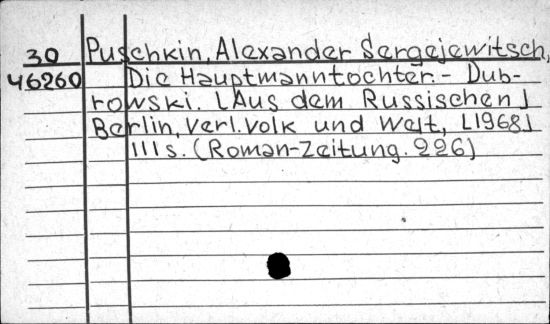 30 Puschkin, Alexander Sergejewitsch,
46260 Die Hauptmanntochter. - Dub-
rowski. [Aus dem Russischen]
Berlin, Verl. Volk und Welt, [1968]
111 s. (Roman-Zeitung. 226)